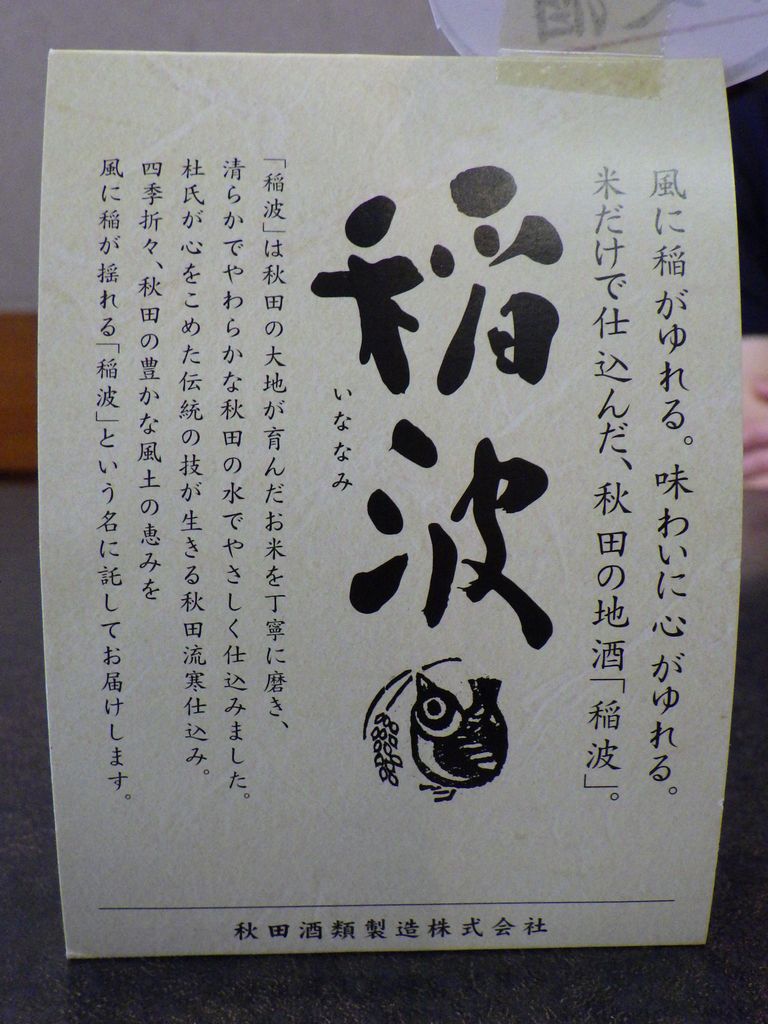 風に稲がゆれる。味わいに心がゆれる。
米だけで仕込んだ、秋田の地酒「稲波」。
稲波
いななみ
「稲波」は秋田の大地が育んだお米を丁寧に磨き、
清らかでやわらかな秋田の水でやさしく仕込みました。
杜氏が心をこめた伝統の技が生きる秋田流寒仕込み。
四季折々、秋田の豊かな風土の恵みを
風に稲が揺れる「稲波」という名に託してお届けします。
秋田酒類製造株式会社